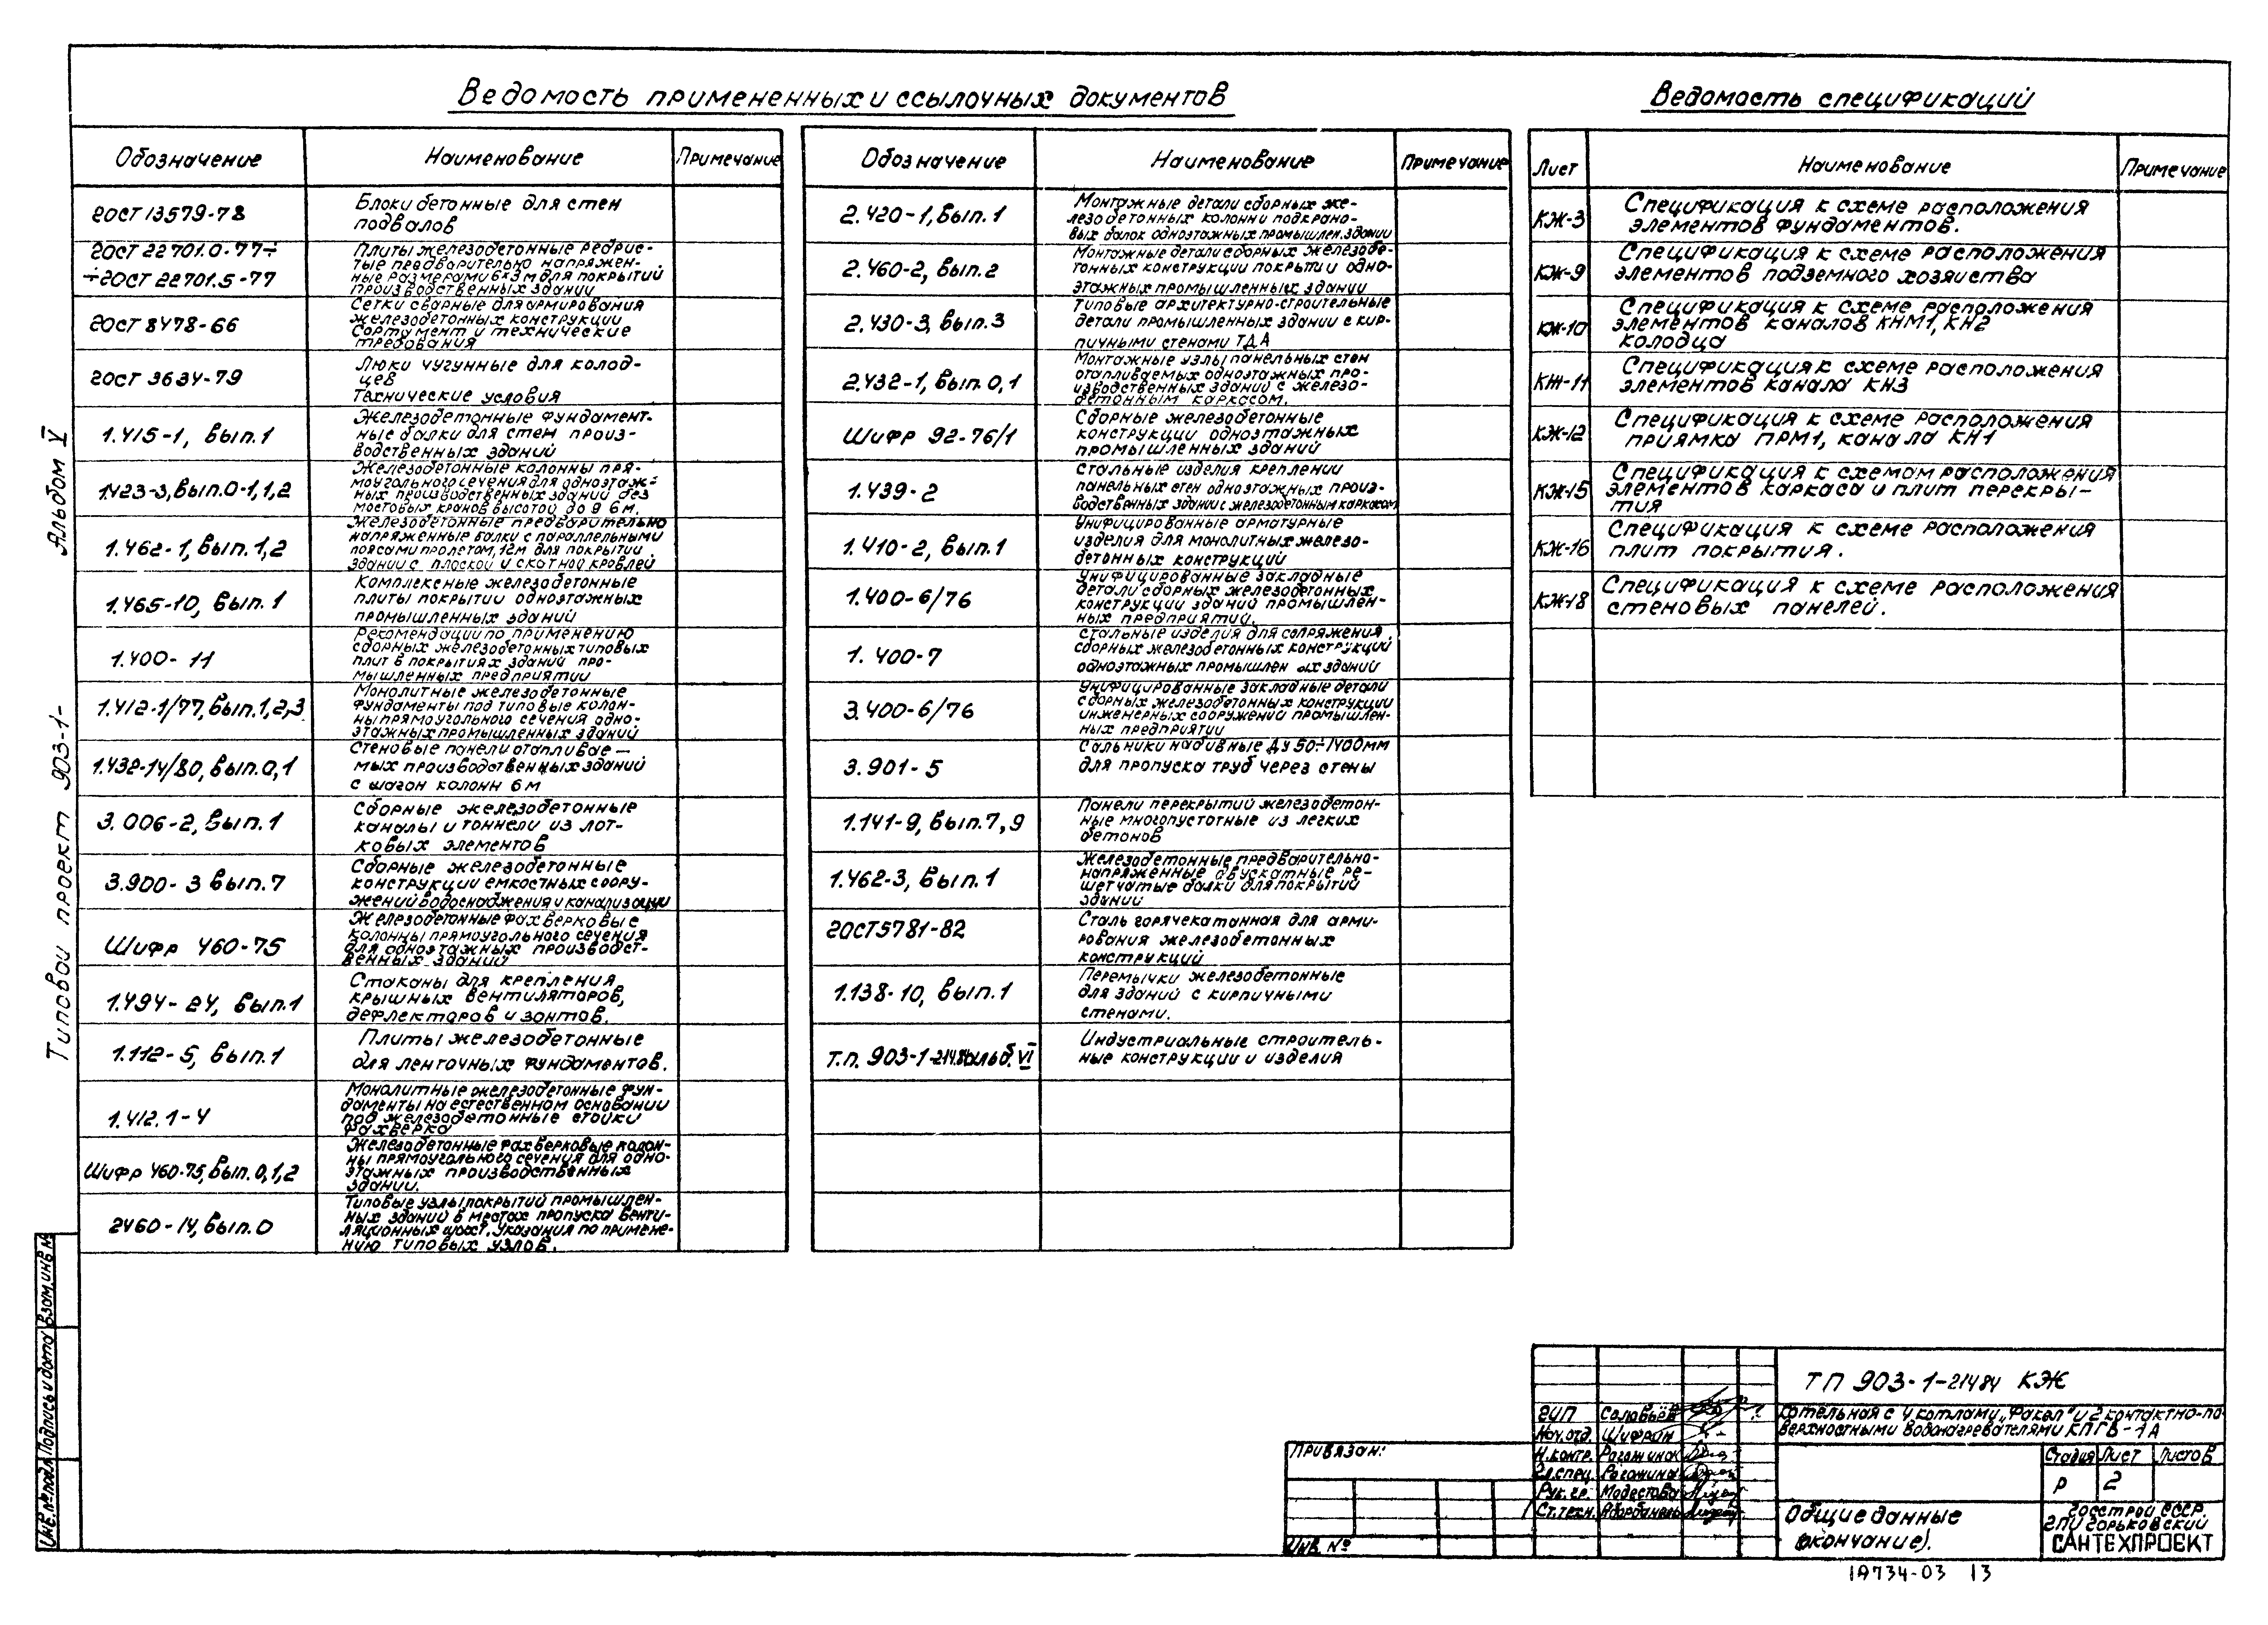 Ведомость примененных и ссылочных документов
Обозначение Наименование Примечание
ГОСТ 13579-78
Блоки бетонные для стен
подвалов
ГОСТ 22701.0-77÷
÷ГОСТ 22701.5-77
Плиты железобетонные ребрис-
тые предварительно напряжен-
ные размерами 6×3м для покрытий
производственных зданий
ГОСТ 8478-66
Сетки сварные для армирования
железобетонных конструкций
Сортамент и технические
требования
ГОСТ 3634-79
Люки чугунные для колод-
цев
Технические условия
1.415-1, вып.1
Железобетонные фундамент-
ные балки для стен произ-
водственных зданий
1.423-3, вып.0-1,1,2
Железобетонные колонны пря-
моугольного сечения для одноэтаж-
ных производственных зданий без
мостовых кранов высотой до 9.6м.
1.462-1, вып.1,2
Железобетонные предварительно
напряженные балки с параллельными
поясами пролетом, 12м для покрытий
зданий с плоской и скатной кровлей
1.465-10, вып.1
Комплексные железобетонные
плиты покрытий одноэтажных
промышленных зданий
1.400-11
Рекомендации по применению
сборных железобетонных типовых
плит в покрытиях зданий про-
мышленных предприятий
1.412-1/77, вып.1,2,3
Монолитные железобетонные
фундаменты под типовые колон-
ны прямоугольного сечения одно-
этажных промышленных зданий
1.432-14/80, вып.0,1
Стеновые панели отапливае-
мых производственных зданий
с шагом колонн 6м
3.006-2, вып.1
Сборные железобетонные
каналы и тоннели из лот-
ковых элементов
3.900-3 вып.7
Сборные железобетонные
конструкции емкостных соору-
жений водоснабжения и канализации
Шифр 460-75
Железобетонные фахверковые
колонны прямоугольного сечения
для одноэтажных производст-
венных зданий
1.494-24, вып.1
Стаканы для крепления
крышных вентиляторов,
дефлекторов и зонтов.
1.112-5, вып.1
Плиты железобетонные
для ленточных фундаментов.
1.412.1-4
Монолитные железобетонные фун-
даменты на естественном основании
под железобетонные стойки
фахверка
Шифр 460-75, вып.0,1,2
Железобетонные фахверковые колон-
ны прямоугольного сечения для одно-
этажных производственных
зданий.
2460-14, вып.0
Типовые узлы покрытий промышлен-
ных зданий в местах пропуска венти-
ляционных шахт. Указания по примене-
нию типовых узлов.
Обозначение Наименование Примечание
2.420-1, вып.1
Монтажные детали сборных же-
лезобетонных колонн и подкрано-
вых балок одноэтажных промышлен. зданий
2.460-2, вып.2
Монтажные детали сборных железобе-
тонных конструкций покрытий одно-
этажных промышленных зданий
2.430-3, вып.3
Типовые архитектурно-строительные
детали промышленных зданий с кир-
пичными стенами ТДА
2.432-1, вып.0,1
Монтажные узлы панельных стен
отапливаемых одноэтажных про-
изводственных зданий с железо-
бетонным каркасом.
Шифр 92-76/1
Сборные железобетонные
конструкции одноэтажных
промышленных зданий
1.439-2
Стальные изделия креплений
панельных стен одноэтажных произ-
водственных зданий с железобетонным каркасом
1.410-2, вып.1
Унифицированные арматурные
изделия для монолитных железо-
бетонных конструкций
1.400-6/76
Унифицированные закладные
детали сборных железобетонных
конструкций зданий промышлен-
ных предприятий.
1.400-7
Стальные изделия для сопряжения
сборных железобетонных конструкций
одноэтажных промышлен ых зданий
3.400-6/76
Унифицированные закладные детали
сборных железобетонных конструкций
инженерных сооружений промышлен-
ных предприятий
3.901-5
Сальники набивные Ду 50÷1400мм
для пропуска труб через стены
1.141-9, вып.7,9
Панели перекрытий железобетон-
ные многопустотные из легких
бетонов
1.462-3, вып.1
Железобетонные предварительно-
напряженные двускатные ре-
шетчатые балки для покрытий
зданий
ГОСТ5781-82
Сталь горячекатанная для арми-
рования железобетонных
конструкций
1.138-10, вып.1
Перемычки железобетонные
для зданий с кирпичными
стенами.
Т.п. 903-1-214.84 альб. VI
Индустриальные строитель-
ные конструкции и изделия
Ведомость спецификаций
Лист Наименование Примечание
КЖ-3
Спецификация к схеме расположения
элементов фундаментов.
КЖ-9
Спецификация к схеме расположения
элементов подземного хозяйства
КЖ-10
Спецификация к схеме расположения
элементов каналов КНМ1, КН2
колодца
КЖ-11
Спецификация к схеме расположения
элементов канала КН3
КЖ-12
Спецификация к схеме расположения
приямка ПРМ1, канала КН1
КЖ-15
Спецификация к схемам расположения
элементов каркаса и плит перекры-
тия
КЖ-16
Спецификация к схеме расположения
плит покрытия.
КЖ-18
Спецификация к схеме расположения
стеновых панелей.
Типовой проект 903-1- Альбом V
Взам.инв.№
Подпись и дата
Инв.№ подл.
Привязан:
Инв. №
ГИП Соловьёв
Нач.отд. Шифрин
Н.контр. Рагожина
Гл.спец. Рагожина
Рук.гр. Модестова
Ст.техн.
ТП 903-1-214 84 КЖ
Котельная с 4 котлами „Факел" и 2 контактно-по-
верхностными водонагревателями КПГВ-1А
Стадия Лист Листов
Р 2
Общие данные
(окончание).
Госстрой СССР
ГПИ Горьковский
САНТЕХПРОЕКТ
19734-03 13